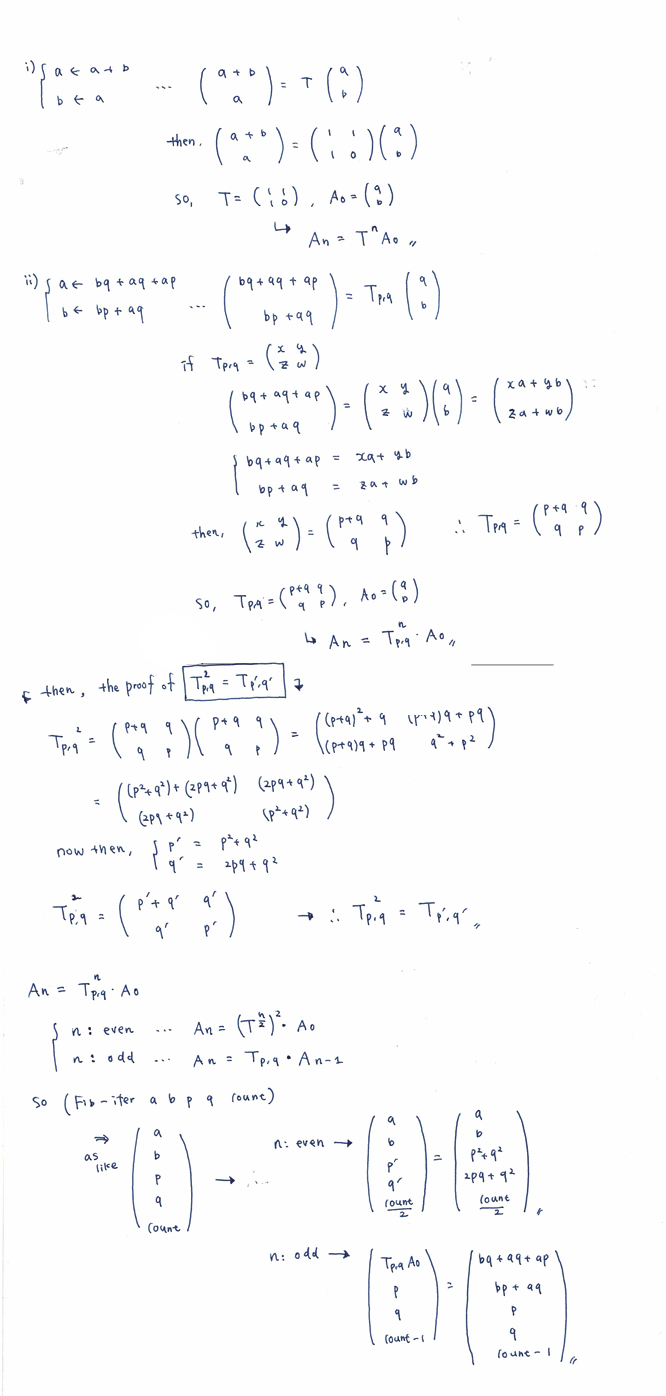 i) { a ← a + b
b ← a
... ( a + b
a ) = T ( a
b )
then. ( a + b
a ) = ( 1 1
1 0 ) ( a
b )
so, T = ( 1 1
1 0 ) , A₀ = ( a
b )
↳ An = Tⁿ A₀ 〃
ii) { a ← bq + aq + ap
b ← bp + aq
... ( bq + aq + ap
bp + aq ) = Tp,q ( a
b )
if Tp,q = ( x y
z w )
( bq + aq + ap
bp + aq ) = ( x y
z w ) ( a
b ) = ( xa + yb
za + wb )
{ bq + aq + ap = xa + yb
bp + aq = za + wb
then, ( x y
z w ) = ( p+q q
q p ) ∴ Tp,q = ( p+q q
q p )
so, Tp,q = ( p+q q
q p ) , A₀ = ( a
b )
↳ An = Tp,qⁿ · A₀ 〃
then, the proof of Tp,q² = Tp',q'
Tp,q² = ( p+q q
q p ) ( p+q q
q p ) = ( (p+q)² + q (p+q)q + pq
(p+q)q + pq q² + p² )
= ( (p²+q²) + (2pq+q²) (2pq+q²)
(2pq+q²) (p²+q²) )
now then, { p' = p² + q²
q' = 2pq + q²
Tp,q² = ( p' + q' q'
q' p' ) → ∴ Tp,q² = Tp',q' 〃
An = Tp,qⁿ · A₀
{ n : even ... An = (T^(n/2))² · A₀
n : odd ... An = Tp,q · An-1
So (Fib-iter a b p q count)
⇒ as like ( a
b
p
q
count ) →
n : even → ( a
b
p'
q'
count/2 ) = ( a
b
p² + q²
2pq + q²
count/2 ) 〃
n : odd → ( Tp,q A₀
p
q
count-1 ) = ( bq + aq + ap
bp + aq
p
q
count - 1 ) 〃